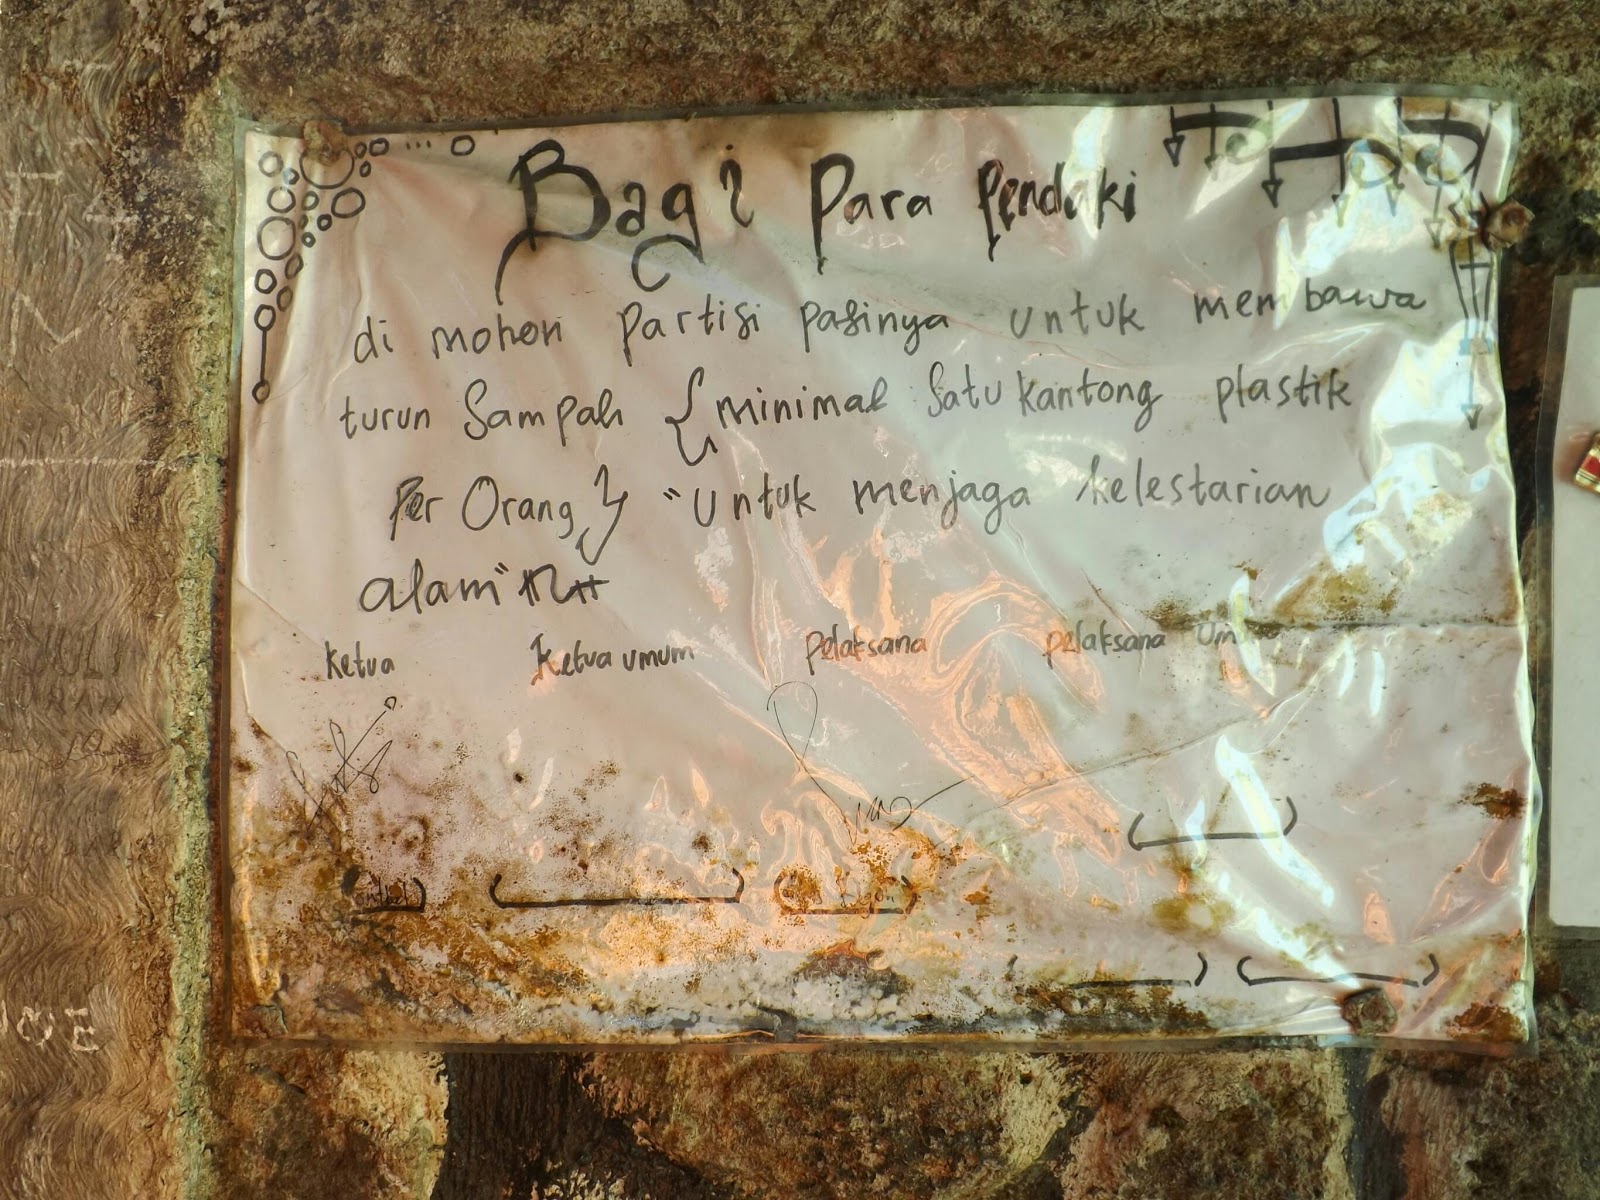 Bagi Para Pendaki
di mohon Partisi pasinya untuk membawa
turun Sampah { minimal Satu kantong plastik
Per Orang } "Untuk menjaga kelestarian
alam"
Ketua Ketua umum Pelaksana pelaksana Um